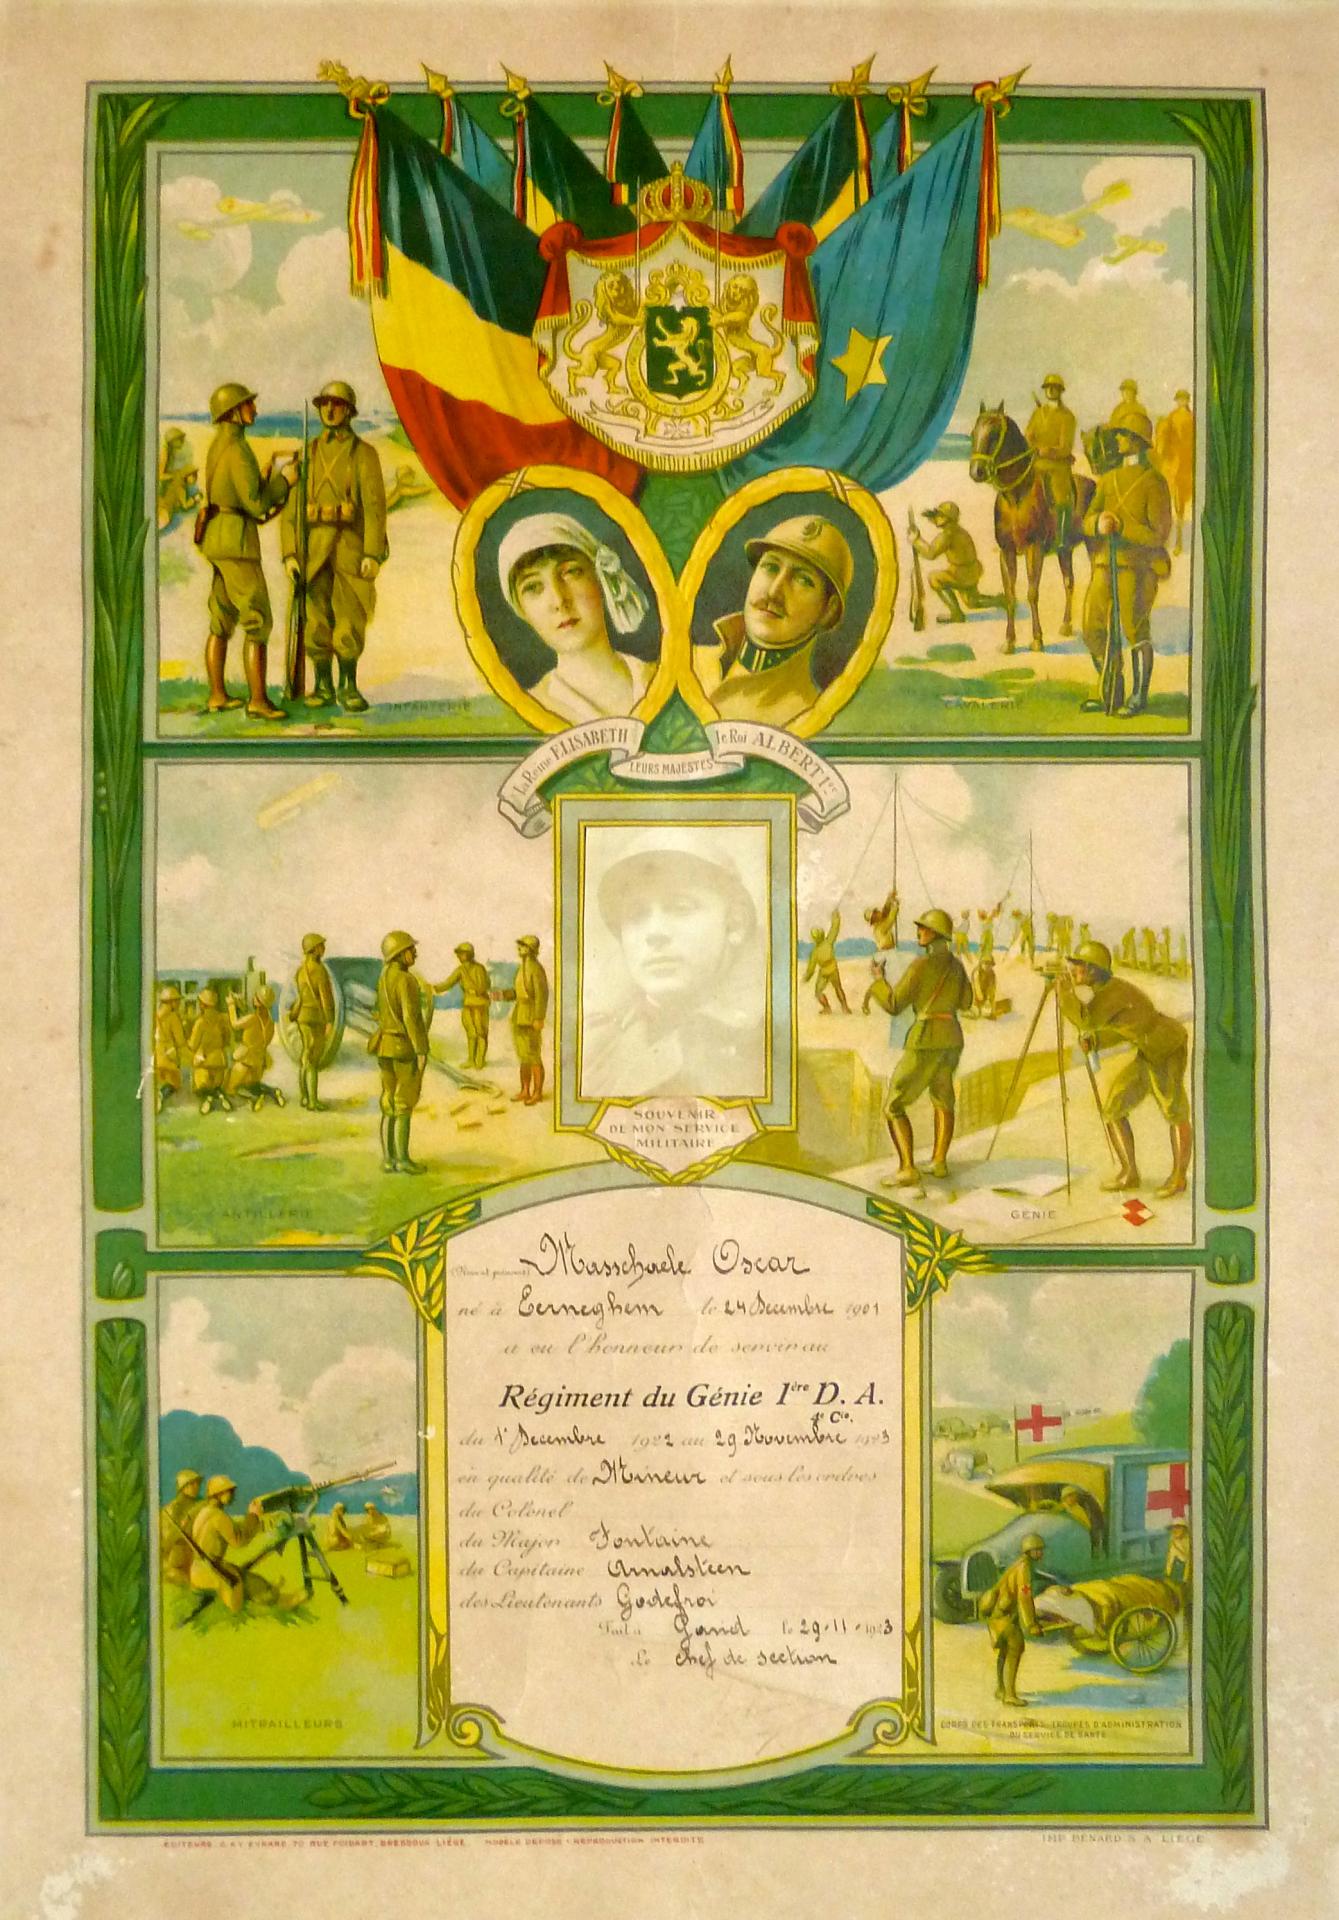 INFANTERIE
CAVALERIE
La Reine ELISABETH
LEURS MAJESTES
le Roi ALBERT 1er
SOUVENIR
DE MON SERVICE
MILITAIRE
ARTILLERIE
GENIE
(Nom et prénoms) Masschaele Oscar
né à Eerneghem le 24 Decembre 1901
a eu l'honneur de servir au
Régiment du Génie 1ère D. A.
4e Cie.
du 1r Decembre 1922 au 29 Novembre 1923
en qualité de Mineur et sous les ordres
du Colonel
du Major Fontaine
du Capitaine Arnalsteen
des Lieutenants Godefroi
Fait à Gand le 29-11-1923
Le chef de section
MITRAILLEURS
CORPS DES TRANSPORTS, TROUPES D'ADMINISTRATION
DU SERVICE DE SANTÉ
EDITEURS G. & Y. EVRARD 70 RUE POIDART, BRESSOUX-LIÉGE MODÈLE DÉPOSÉ - REPRODUCTION INTERDITE
IMP. BÉNARD S. A. LIÉGE